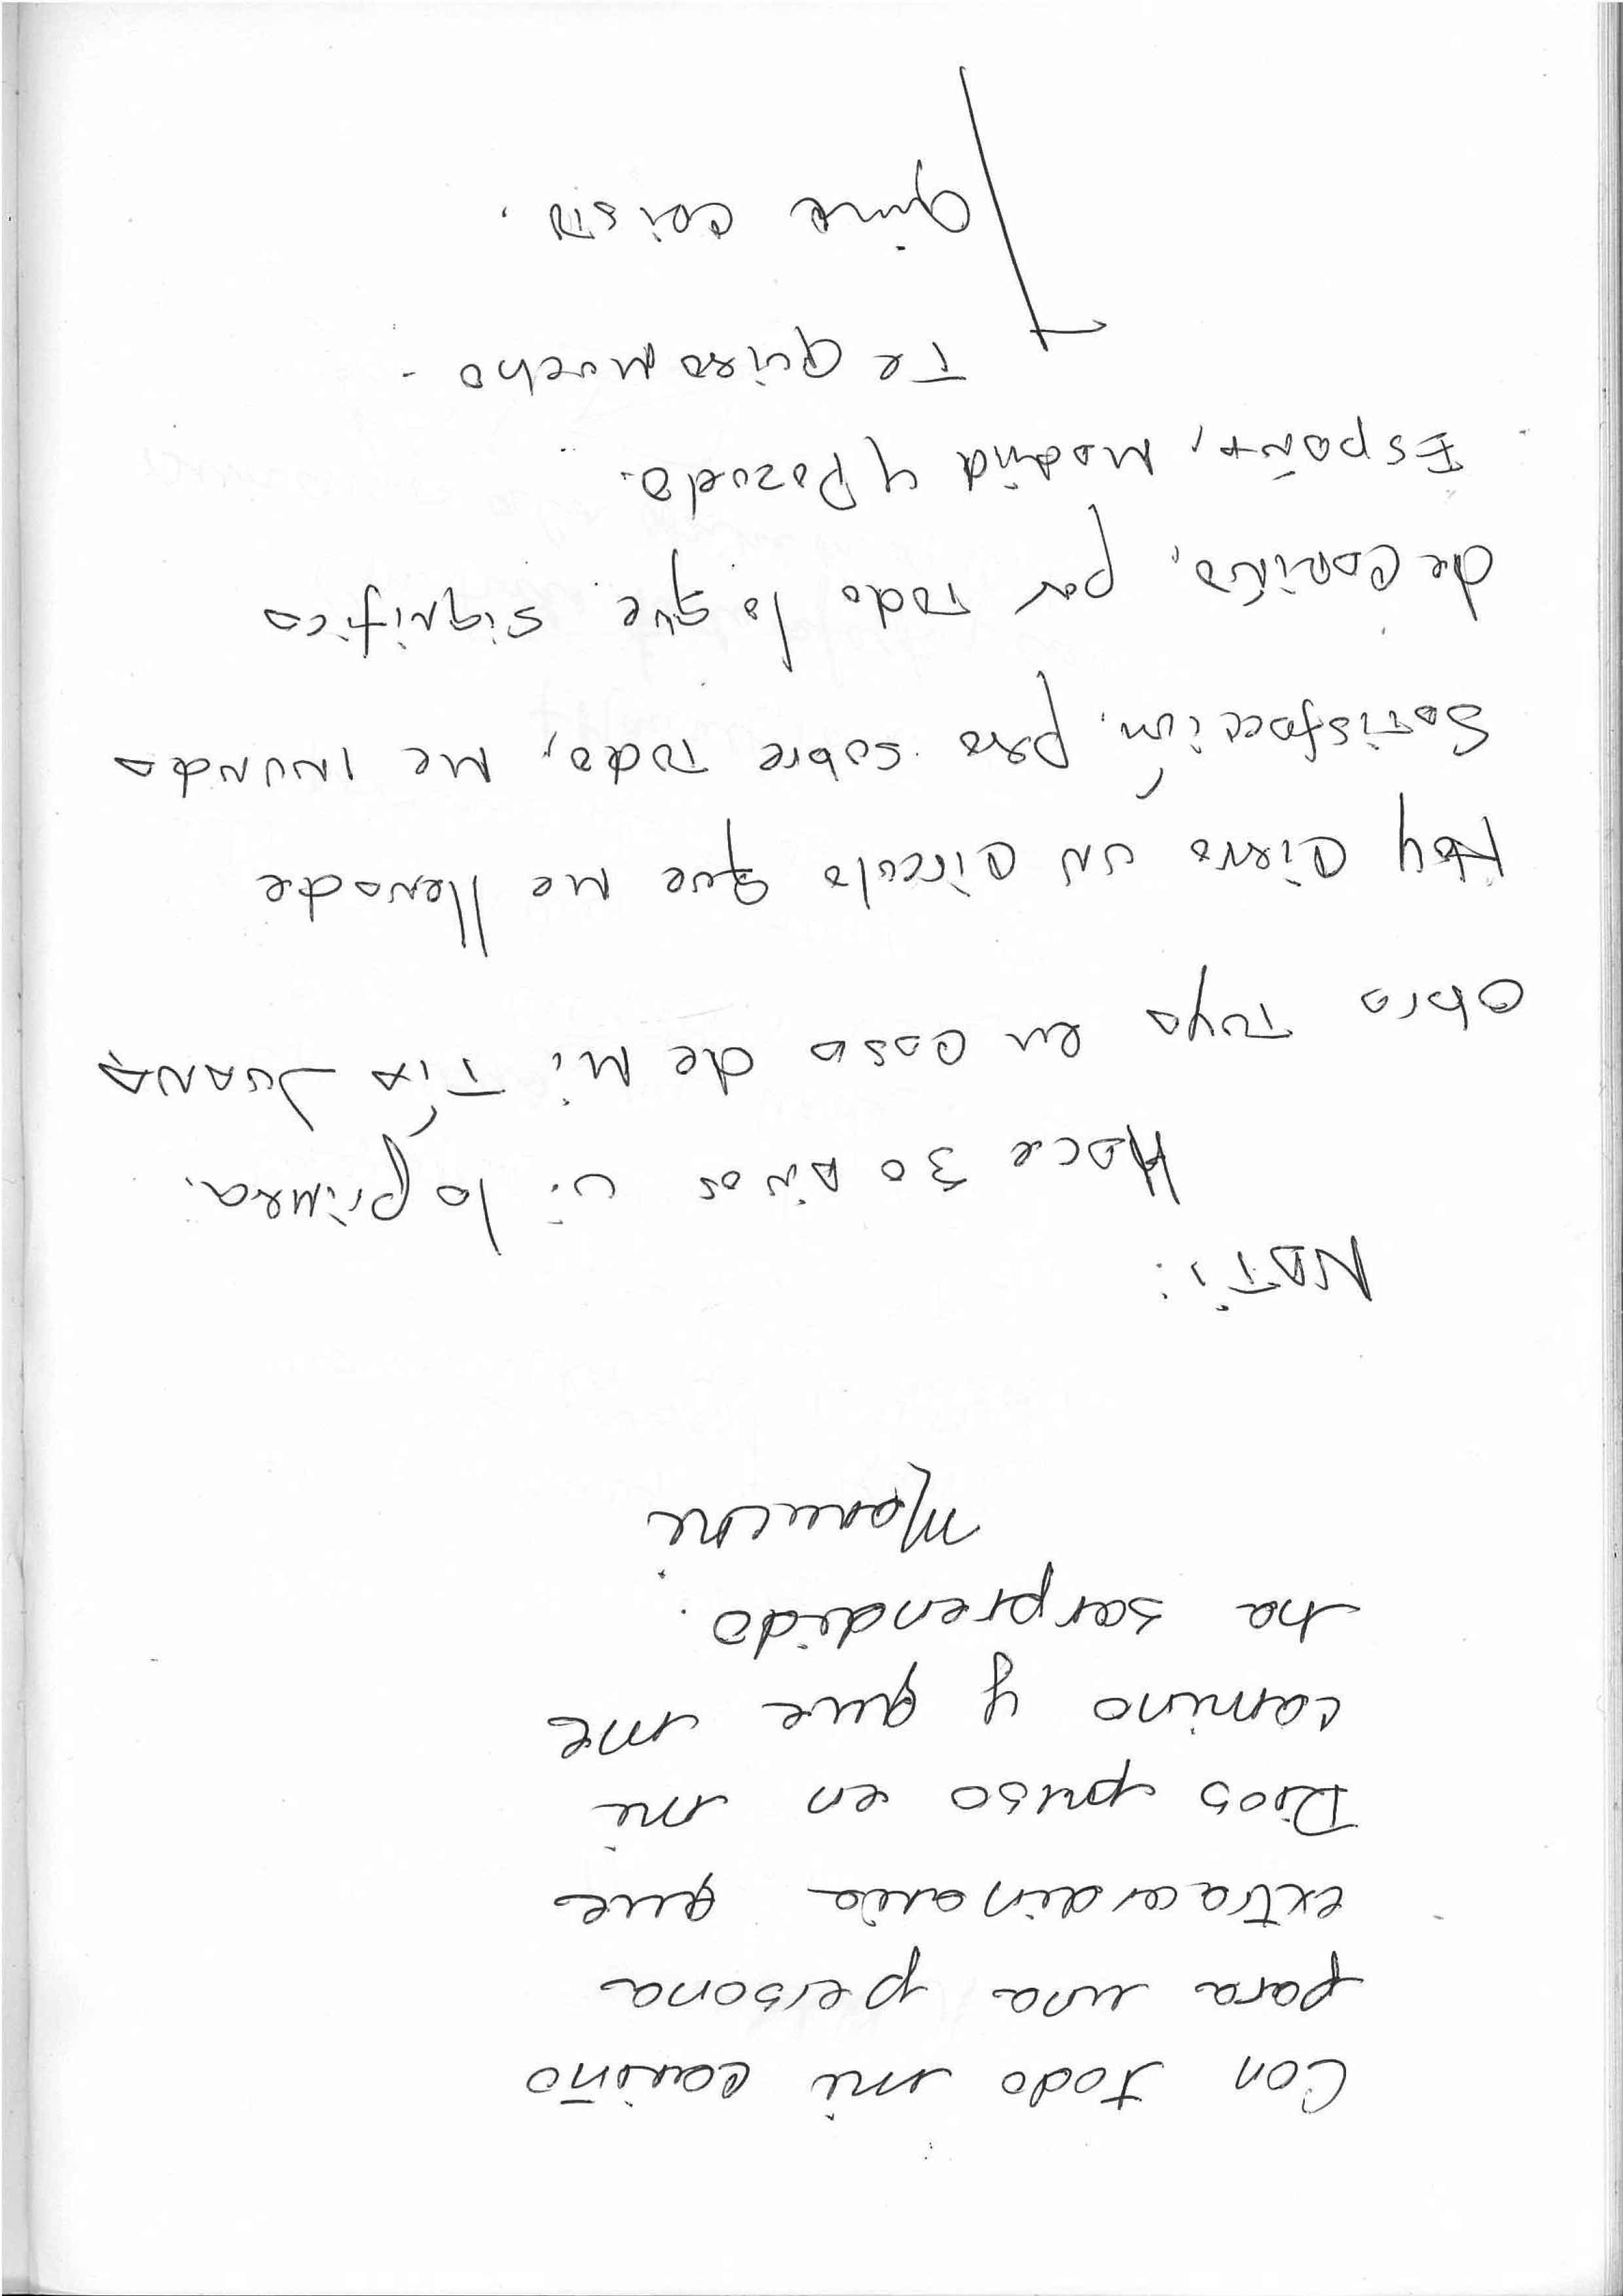 Con todo mi cariño
para una persona
extraordinaria que
Dios puso en mi
camino y que me
ha sorprendido.
NATI:
Hace 30 Años vi la primera
obra Tuya en casa de Mi TíA JUANA
Hoy cierro un circulo que me llena de
Satisfacción, pero sobre Todo, me inunda
de cariño, por Todo lo que significa
EspañA, Madrid y Pozuelo.
Te quiero Mucho.